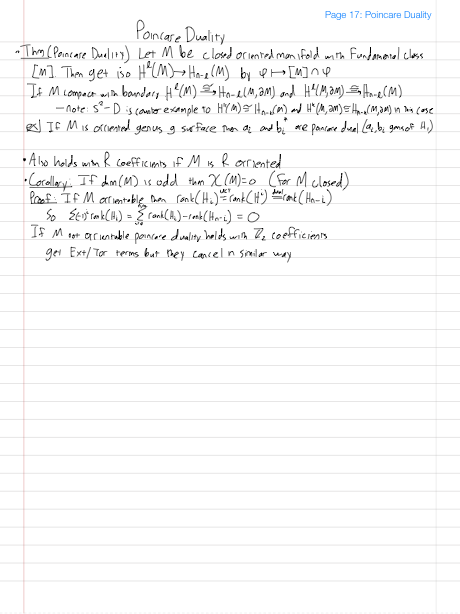 Page 17: Poincare Duality
Poincare Duality
• Thm (Poincare Duality) Let M be closed oriented manifold with Fundamental class
[M]. Then get iso Hˡ(M)→Hₙ₋ₗ(M) by φ ↦ [M]∩φ
If M compact with boundary Hˡ(M) ≅ Hₙ₋ₗ(M,∂M) and Hˡ(M,∂M) ≅ Hₙ₋ₗ(M)
- note: S² - D is counter example to H⁰(M) ≅ Hₙ₋₀(M) and H⁰(M,∂M) ≅ Hₙ₋₀(M,∂M) in this case
ex) If M is oriented genus g surface then aᵢ and bᵢ* are poincare dual (aᵢ,bᵢ gens of H₁)
• Also holds with R coefficients if M is R orriented
• Corollary: If dim(M) is odd then X(M)=0 (for M closed)
Proof: If M orrientable then rank(Hᵢ) = rank(Hⁱ) = rank(Hₙ₋ᵢ)
So Σ(-1)ⁱ rank(Hᵢ) = Σ rank(Hᵢ) - rank(Hₙ₋ᵢ) = 0
If M not orrientable poincare duality holds with Z₂ coefficients
get Ext/Tor terms but they cancel in similar way